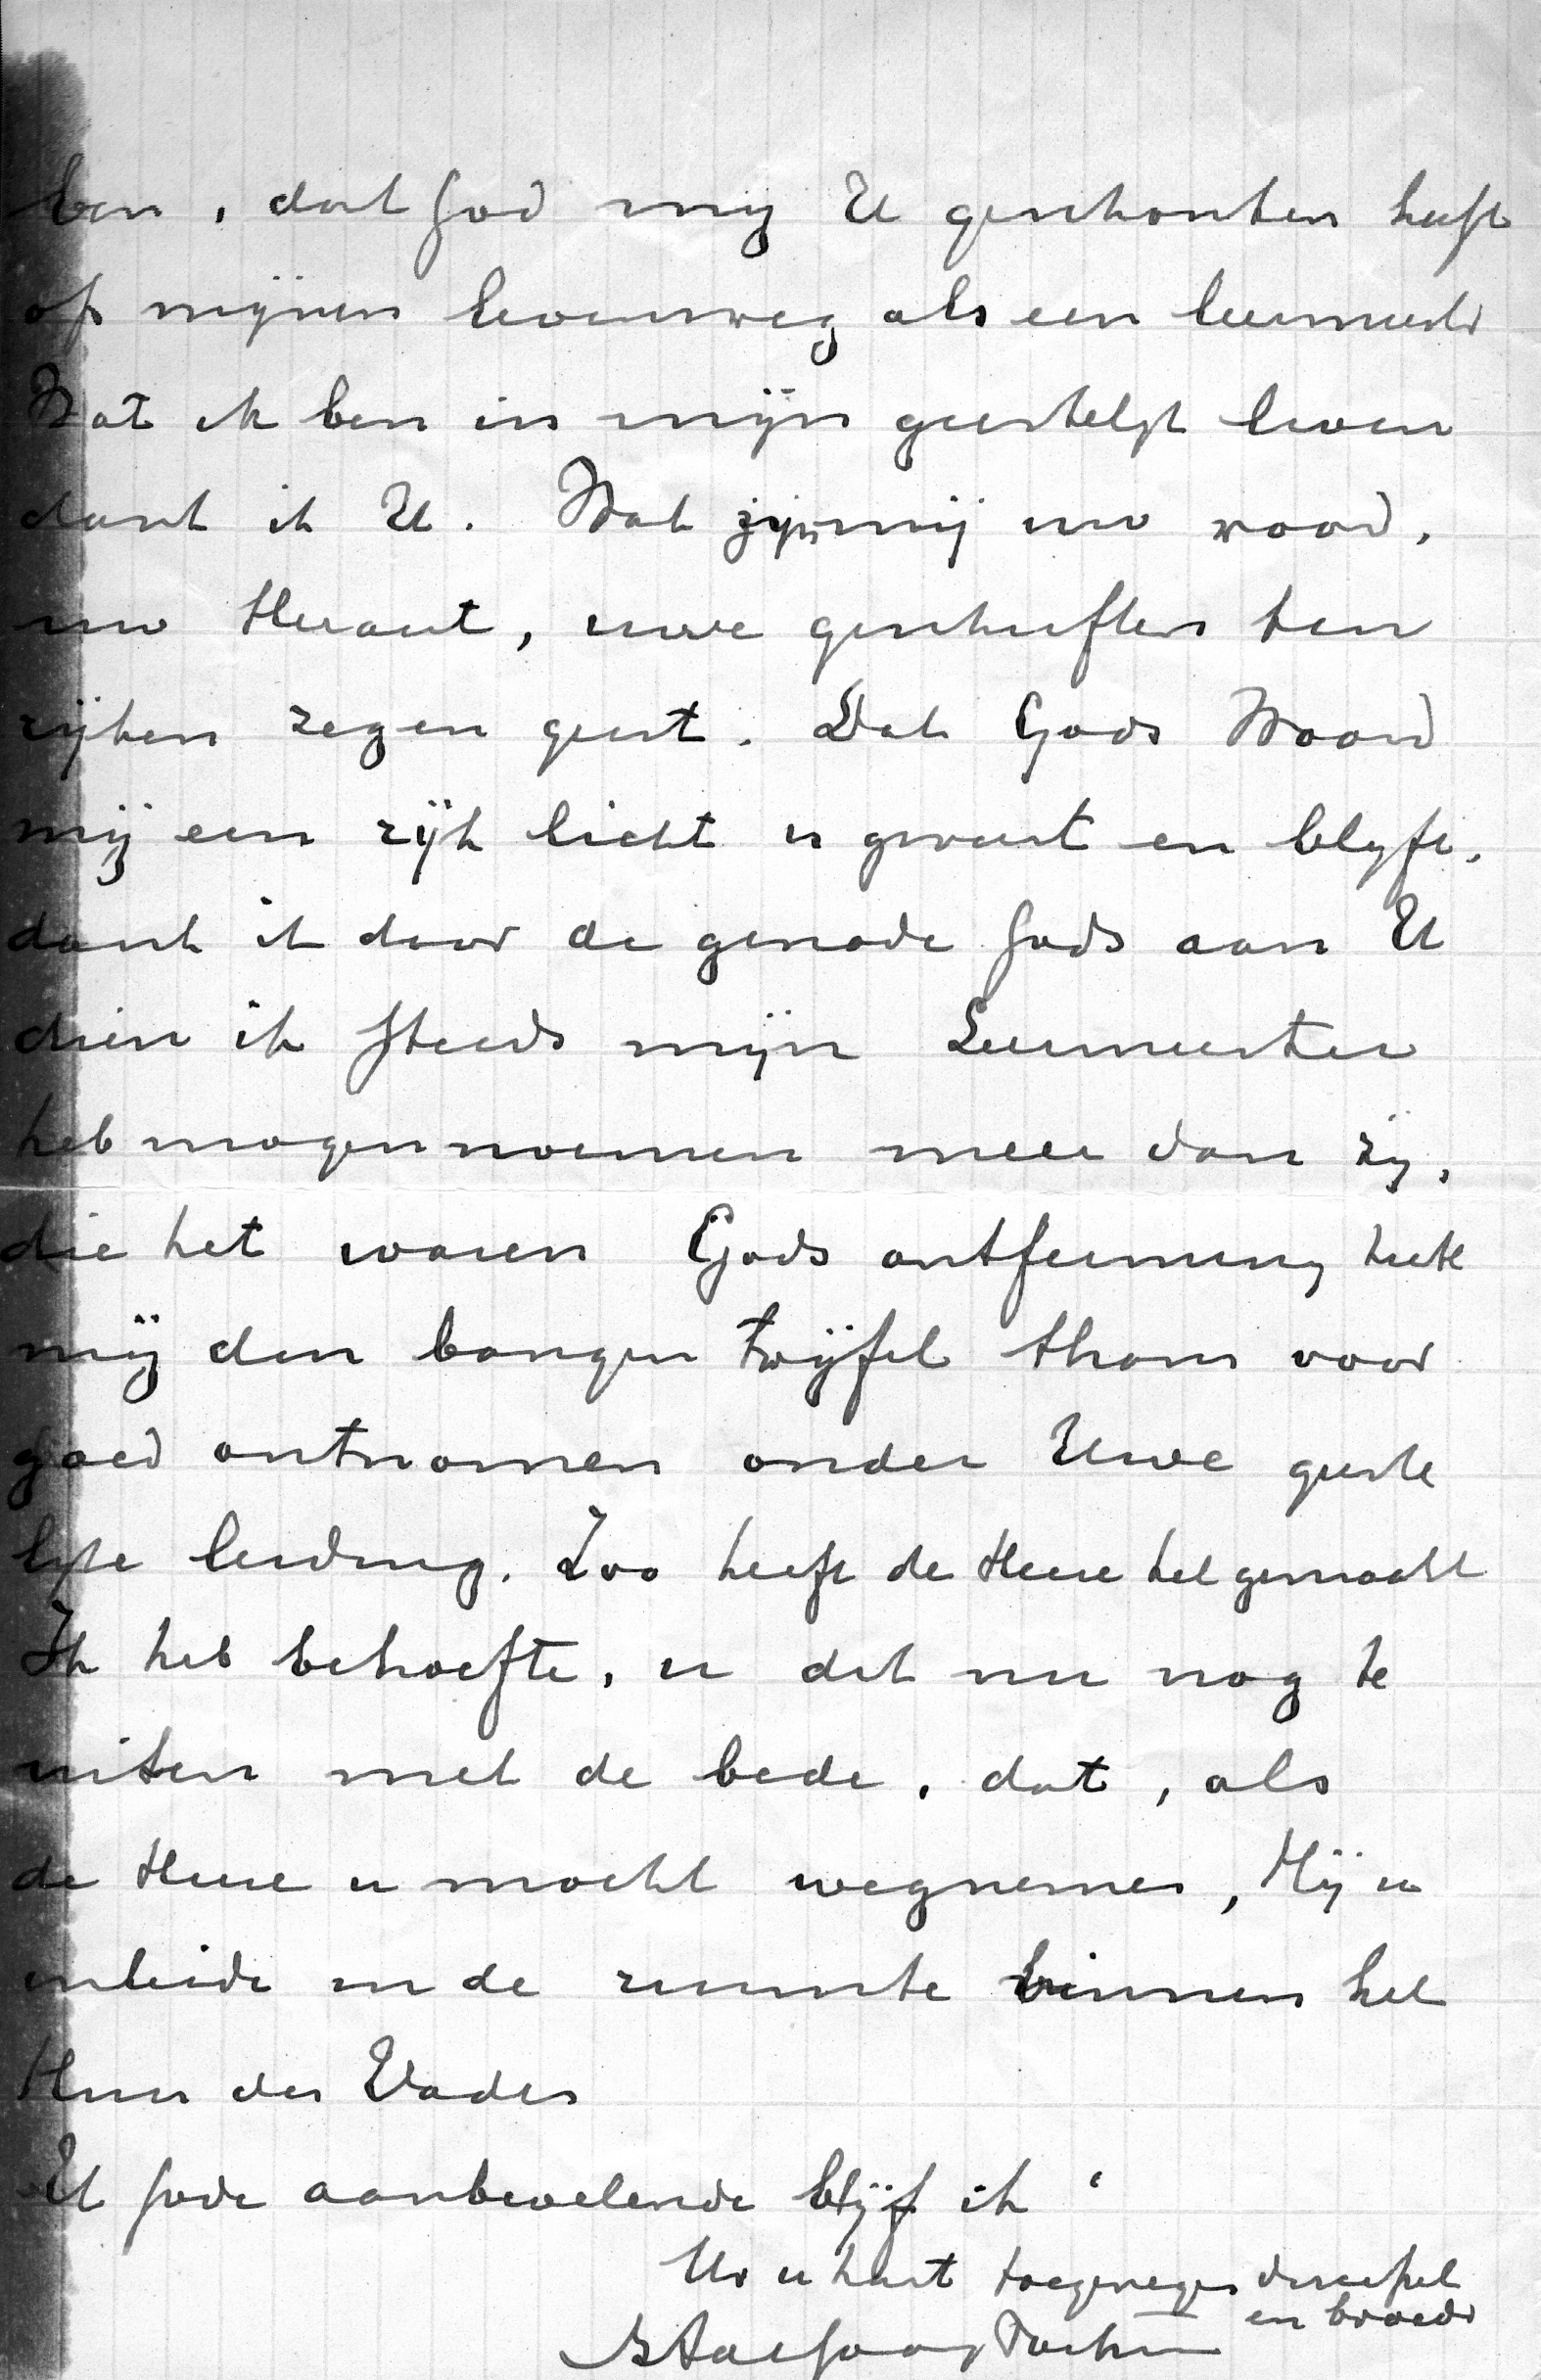 ben, dat God mij U geschonken heeft
op mijnen levensweg als een leermeester
Wat ik ben in mijn geestelijk leven
dank ik U. Wat zijn mij uw woord,
uw Heraut, uwe geschriften ten
rijken zegen geest. Dat Gods Woord
mij een rijk licht is geweest en blijft,
dank ik door de genade Gods aan U
dien ik steeds mijn Leermeester
heb mogen noemen meer dan zij,
die het waren Gods ontferming heeft
mij den bangen twijfel thans voor
goed ontnomen onder Uwe geeste
lijke leiding. Zoo heeft de Heere het gemaakt
Ik heb behoefte, u dit nu nog te
uiten met de bede, dat, als
de Heere u mocht wegnemen, Hij u
inleide in de ruimte binnen het
Huis des Vaders
U Gode aanbevelende blijf ik
Uw u hart toegenegen discipel
en broeder